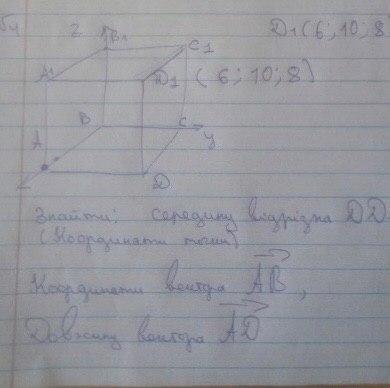 z
B1
C1
D1 (6; 10; 8
A1
D1 (6; 10; 8)
B
C
A
y
D
Знайти: середину відрізка DD
(Координати точки)
Координати вектора AB,
Довжину вектора AD